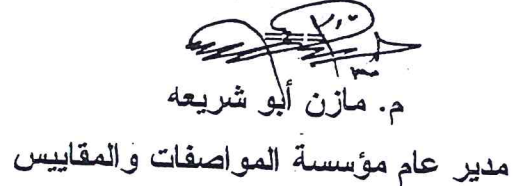 م. مازن أبو شريعه
مدير عام مؤسسة المواصفات والمقاييس